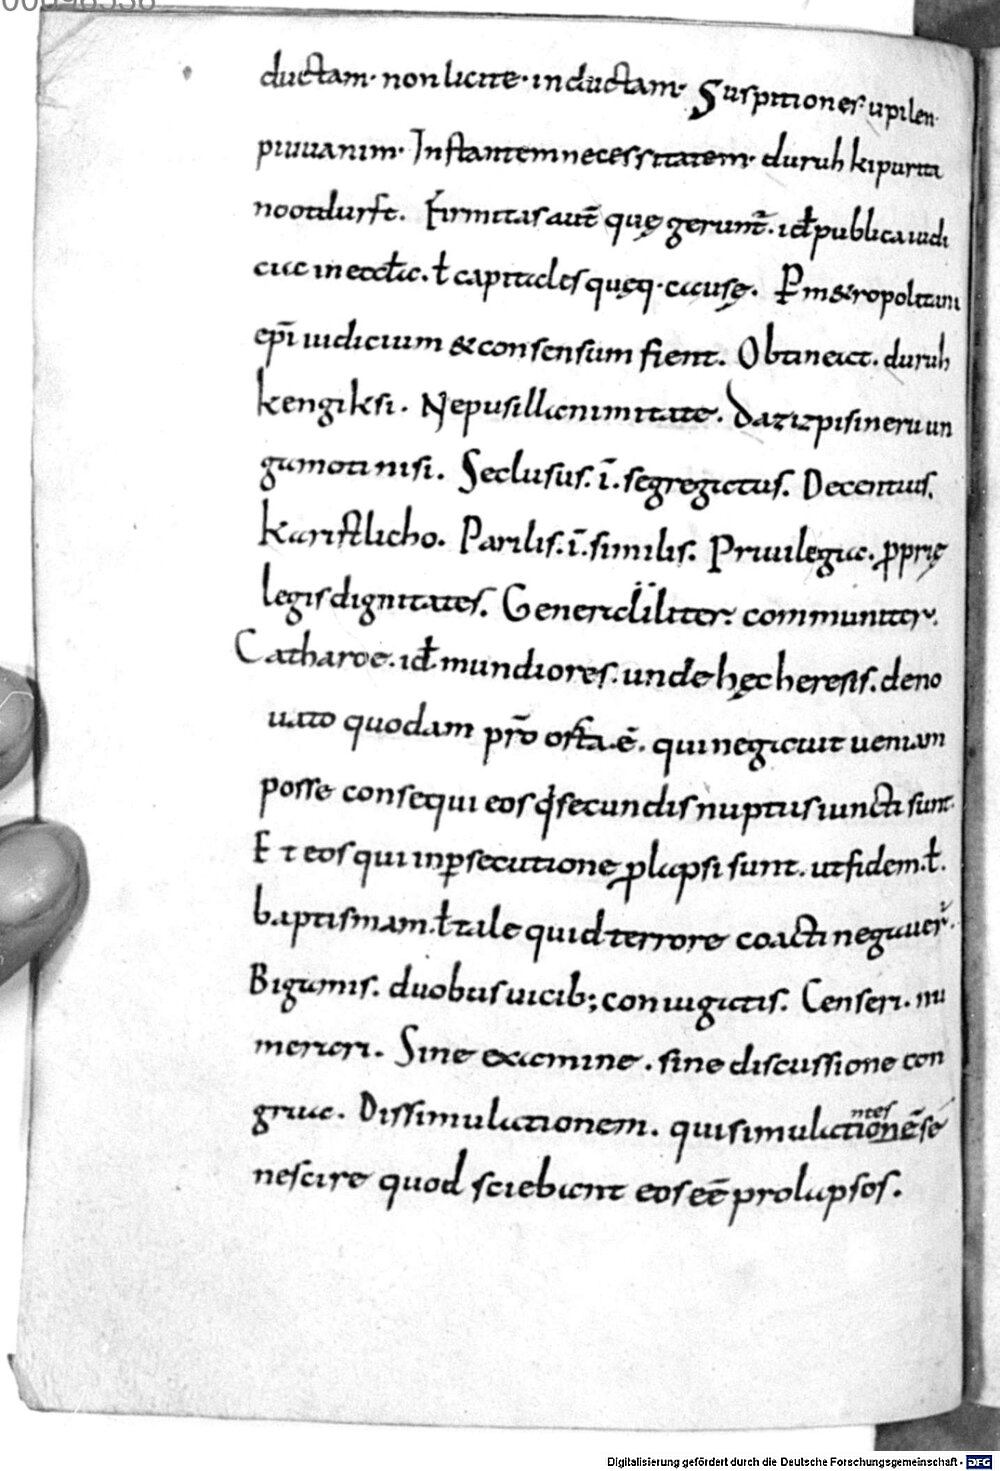 ductam· non licite· inductam· Suspitiones· upilen
piuuanim· Instantem necessitatem· duruh kipurita
nootdurft. Firmitas aut̄ quę gerunt̄· id̵ publica iudi
cia in eccl̵ia. ł capitales quęq· causę. P̲ metropolitani
ep̄i iudicium & consensum fient. Obtineat. duruh
kengiksi. Ne pusillanimitate. Daz iz pisineru un
gamotinisi. Seclusus. ī. segregatus. Decentius.
karistlicho. Parilis. ī. similis. Priuilegia. ꝓprię
legis dignitates. Generaliliter: communiter.
Catharoe. id̵ mundiores. unde hęc heresis. deno
uato quodam pr̄o orta ē. qui negauit ueniam
posse consequi eos qd̵ secundis nuptiis iuncti sunt.
Et eos qui in ꝑsecutione ꝓlapsi sunt. ut fidem ł.
baptismam ł tale quid terrore coacti negauer̄.
Bigamis. duobus uicib; coniugatis. Censeri. nu
merari. Sine examine. sine discussione con
grua. Dissimulationem. qui simulationē se
ntes
nescire quod sciebant eos eē prolapsos.
Digitalisierung gefördert durch die Deutsche Forschungsgemeinschaft - DFG